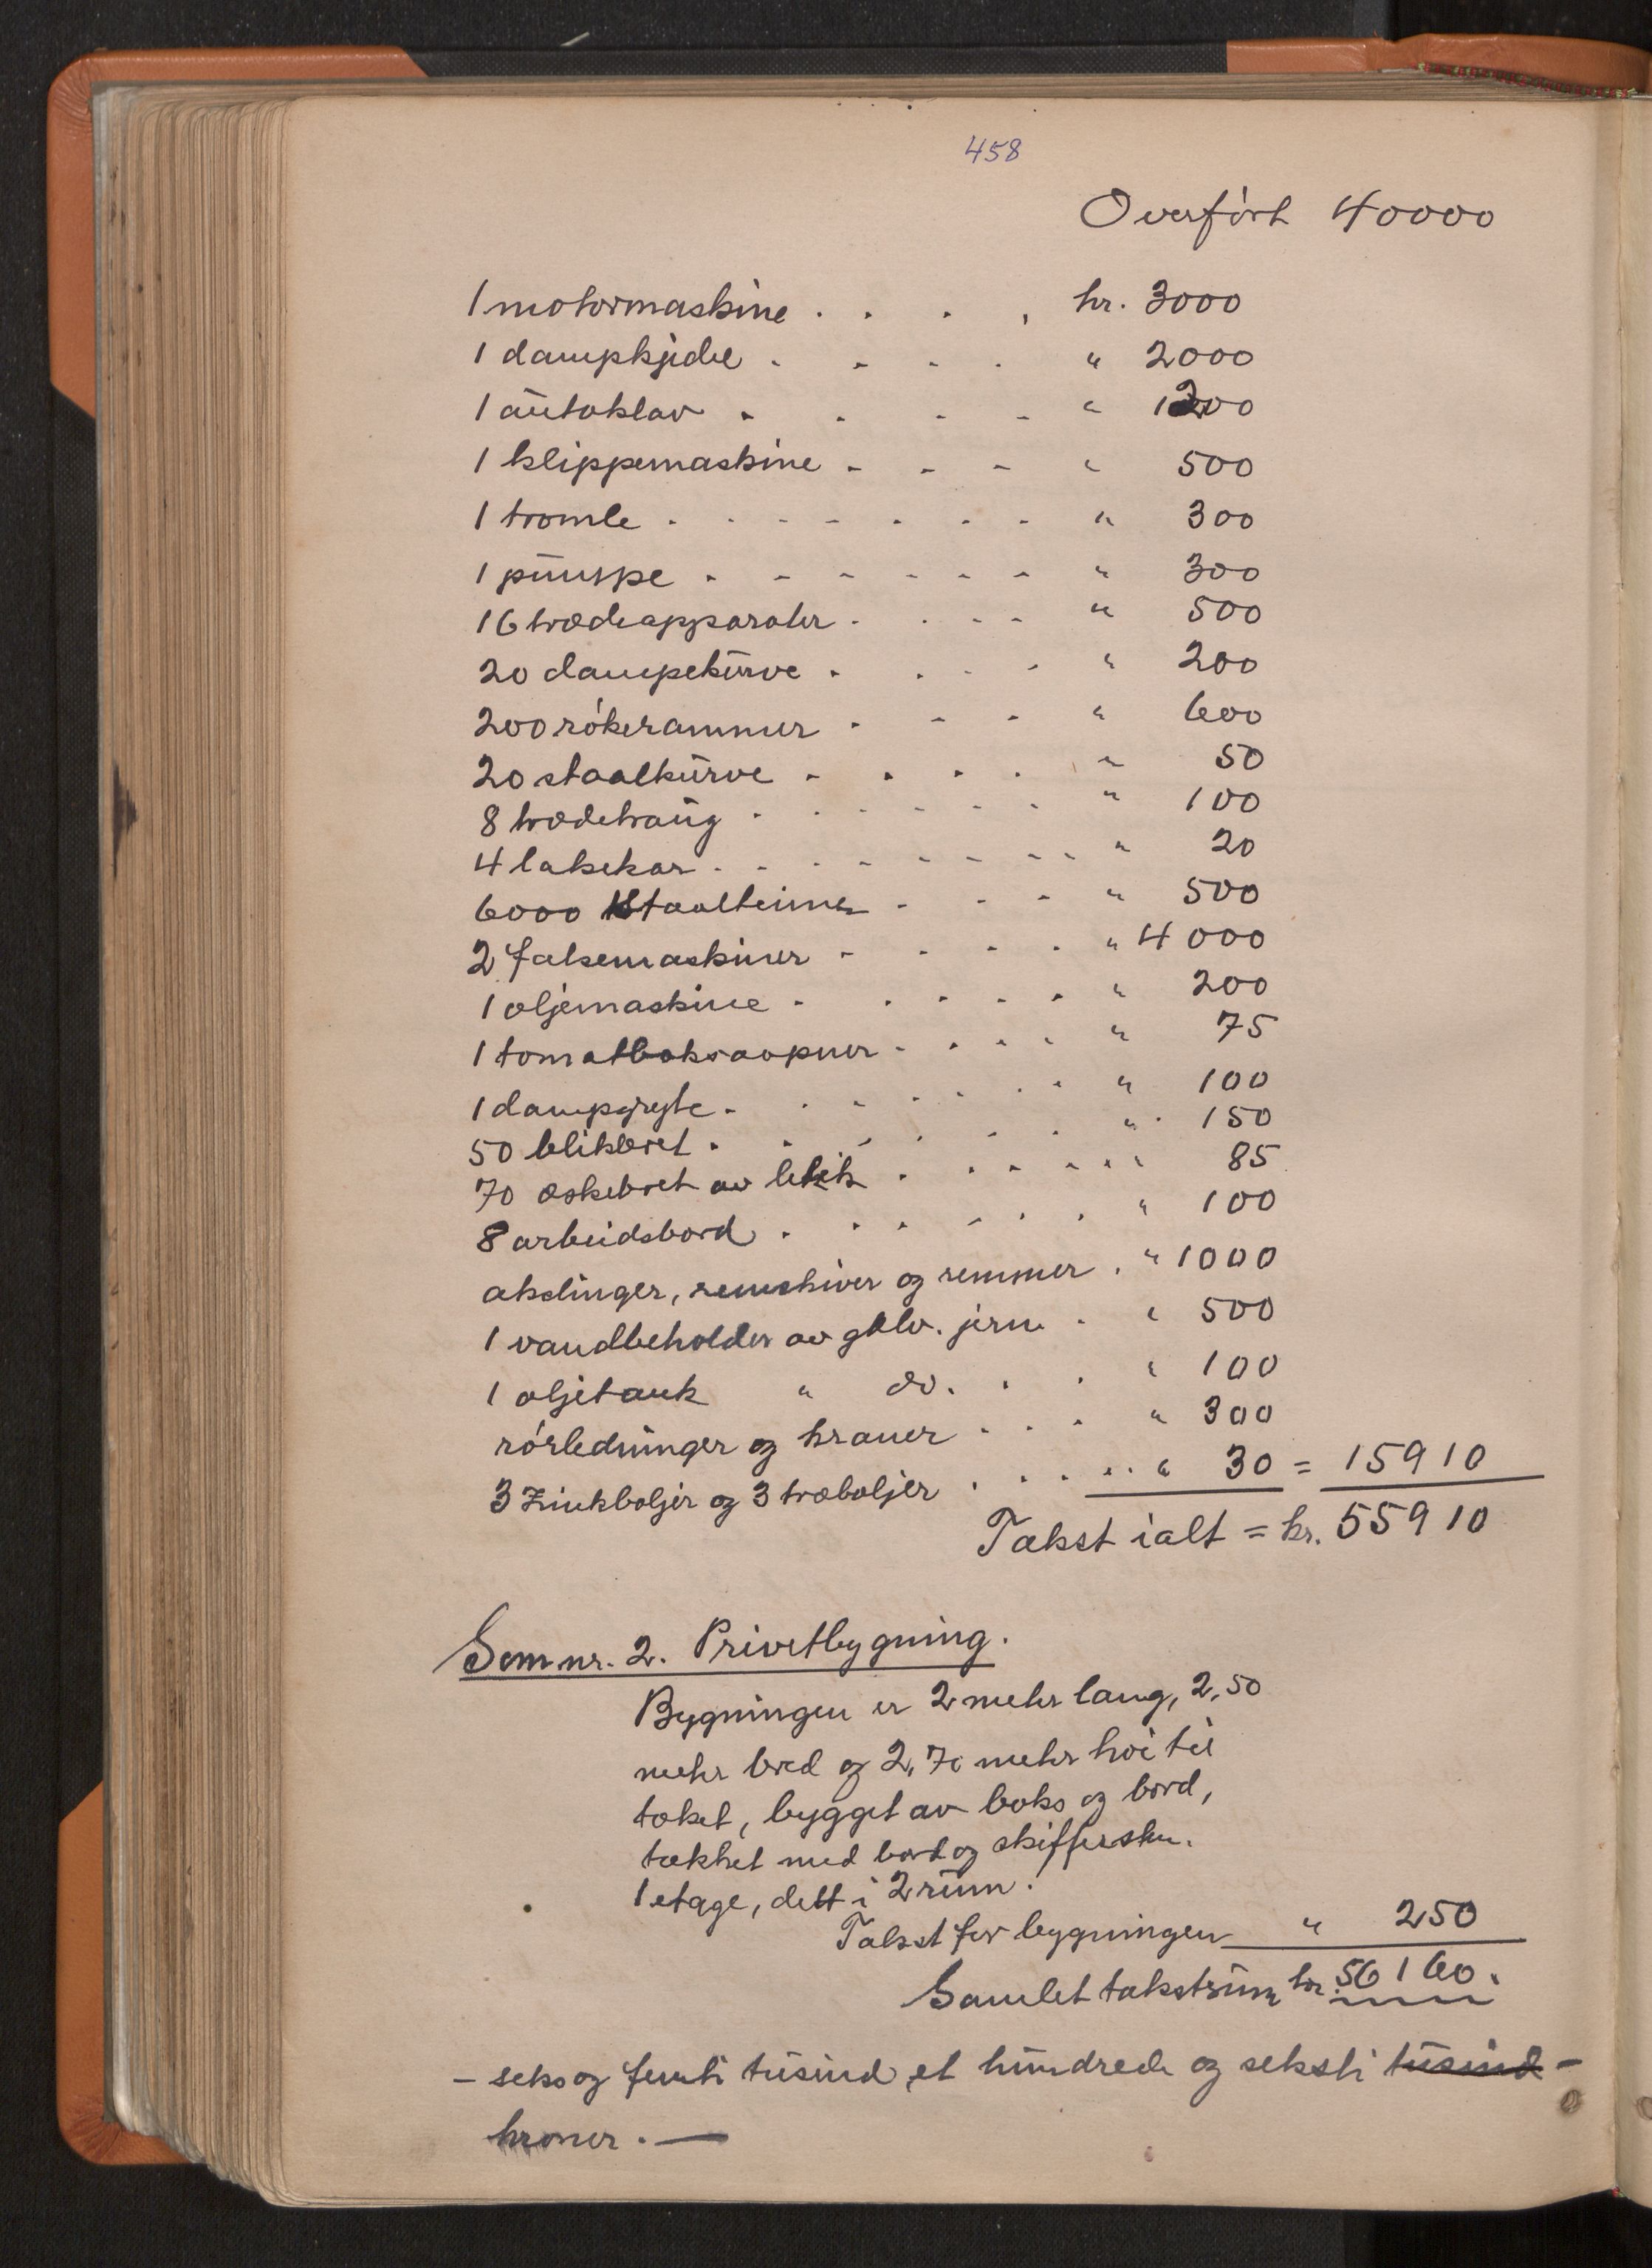 458
Overført 40000
1 motormaskine . . . . kr. 3000
1 dampkjedel . . . . " 2000
1 autoklav . . . . " 1200
1 klippemaskine . . . " 500
1 tromle . . . . . . . " 300
1 pumpe . . . . . . " 300
16 trædeapparater . . . . " 500
20 dampekurve . . . . " 200
200 rökerammer . . . " 600
20 staalkurve . . . . " 50
8 trædetraug . . . . . . " 100
4 lakekar . . . . . . . . " 20
6000 Staalteiner . . . " 500
2 falsemaskiner . . . . " 4000
1 oljemaskine . . . . . " 200
1 tomatboksaapner . . . . " 75
1 dampgryte . . . . . . " 100
50 blikbret . . . . . . " 150
70 æskebret av blik . . . . . " 85
8 arbeidsbord . . . . . . " 100
akslinger, remskiver og remmer . " 1000
1 vandbeholder av galv. jern . " 500
1 oljetank " do. . . " 100
rörledninger og kraner . . . " 300
3 Zinkboljer og 3 træboljer . . . . . " 30 = 15910
Takst ialt = kr. 55910
Som nr. 2. Privetbygning.
Bygningen er 2 meter lang, 2,50
meter bred og 2,70 meter höi til
taket, bygget av boks og bord,
tækket med bord og skiffersten.
1 etage, delt i 2 rum.
Takst for bygningen " 250
Samlet takstsum kr. 56160.
- seks og femti tusind, et hundrede og seksti tusind -
kroner. —